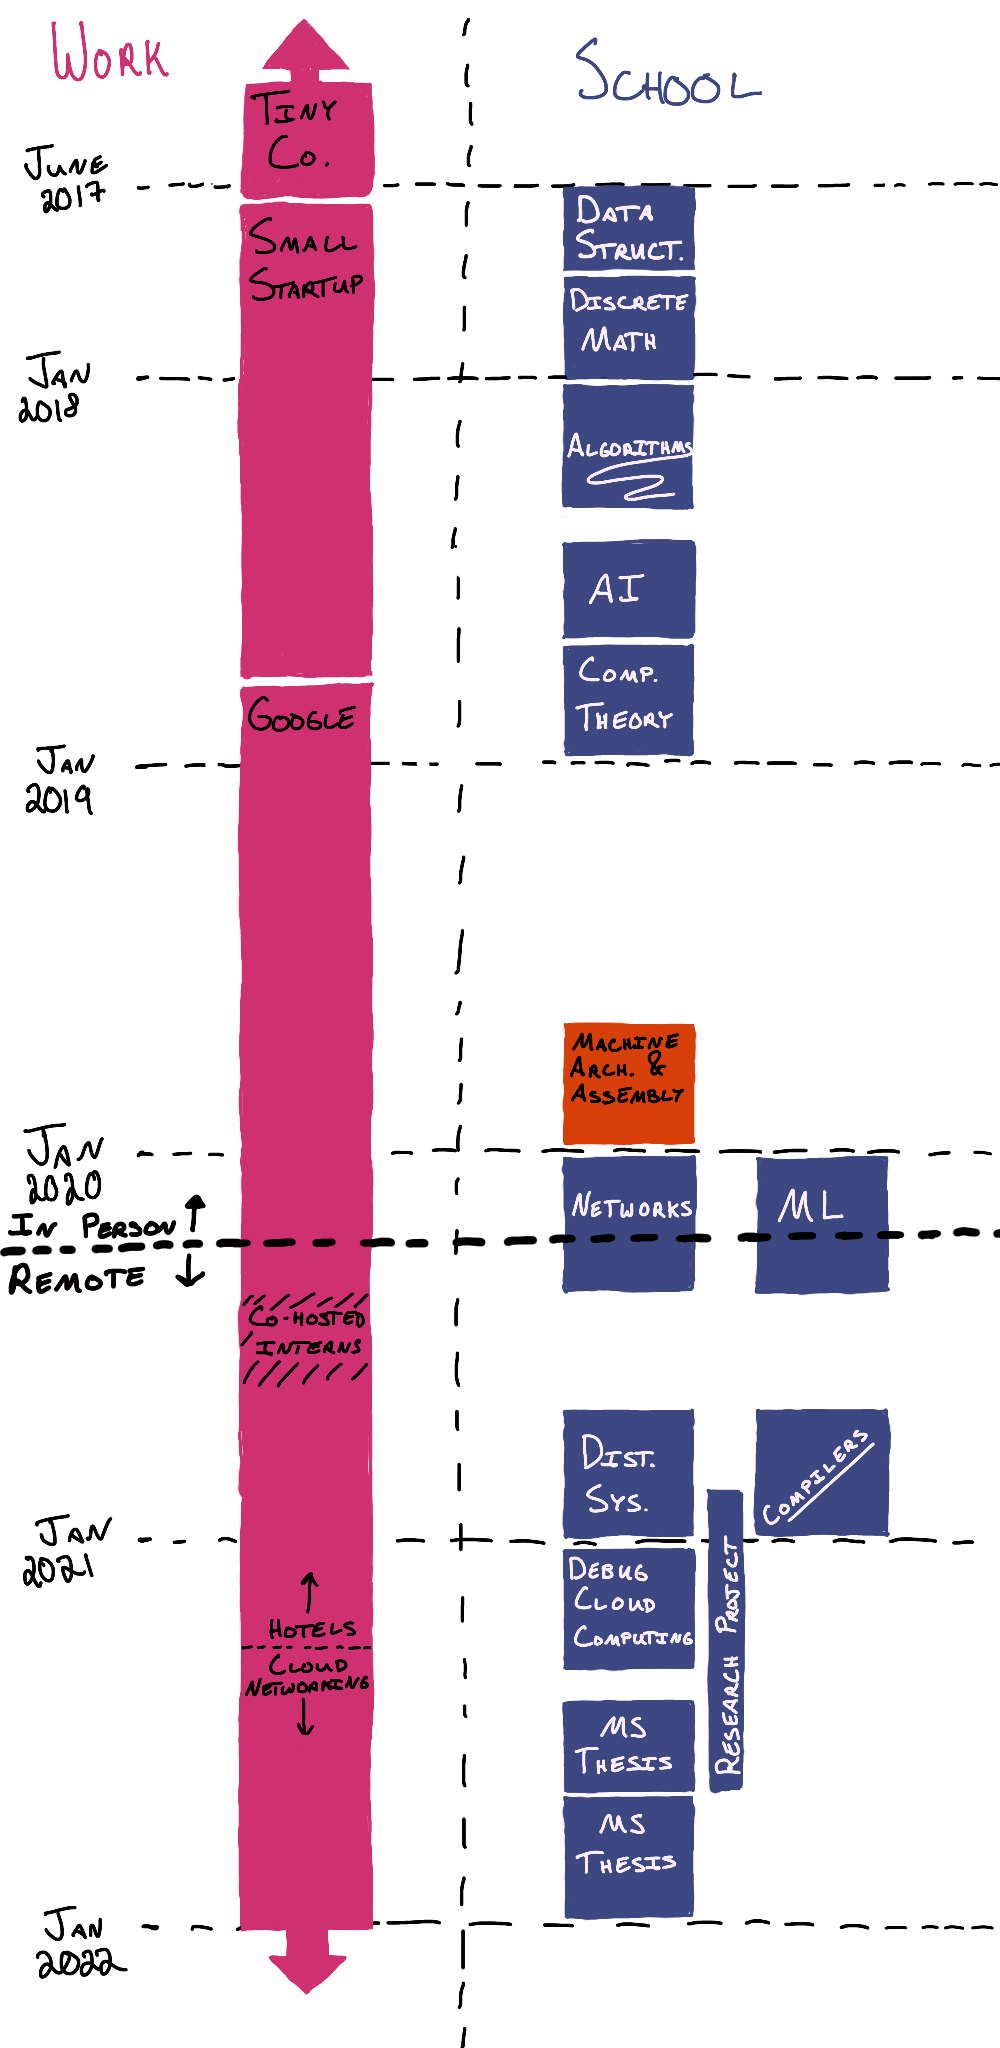 WORK
SCHOOL
TINY
CO.
JUNE
2017
DATA
STRUCT.
SMALL
STARTUP
DISCRETE
MATH
JAN
2018
ALGORITHMS
AI
COMP.
THEORY
GOOGLE
JAN
2019
MACHINE
ARCH. &
ASSEMBLY
JAN
2020
NETWORKS
ML
IN PERSON ↑
REMOTE ↓
CO-HOSTED
INTERNS
DIST.
SYS.
COMPILERS
JAN
2021
RESEARCH PROJECT
DEBUG
CLOUD
COMPUTING
↑
HOTELS
CLOUD
NETWORKING
↓
MS
THESIS
MS
THESIS
JAN
2022